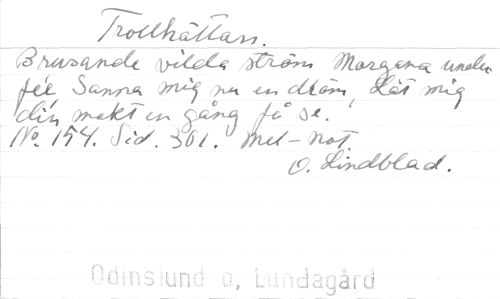 Trollhättan.
Brusande vilda ström Morgana under
fée Sanna mig nu en dröm, Låt mig
din makt en gång få se.
No. 154. Sid. 301. Mel-not.
O. Lindblad.
Odinslund o, Lundagård